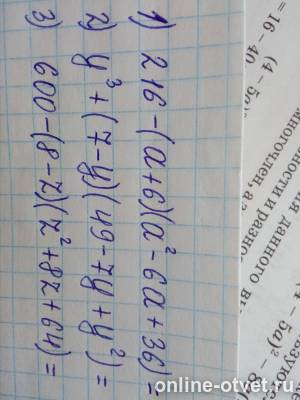 1) 216-(a+6)(a²-6a+36)=
2) y³+(7-y)(49-7y+y²)=
3) 600-(8-z)(z²+8z+64)=
= 16 - 40
(4 - 5a)
многочлен, а
ности и разно
данного
online-otvet.ru